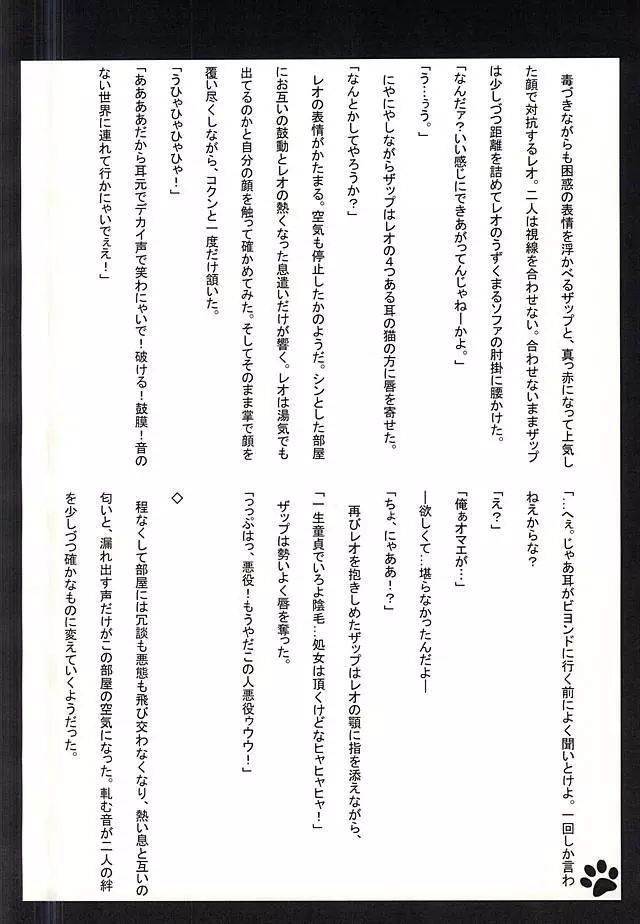 毒づきながらも困惑の表情を浮かべるザップと、真っ赤になって上気し
た顔で対抗するレオ。二人は視線を合わせない。合わせないままザップ
は少しづつ距離を詰めてレオのうずくまるソファの肘掛に腰かけた。
「なんだァ？いい感じにできあがってんじゃねーかよ。」
「う…ぅう。」
にやにやしながらザップはレオの４つある耳の猫の方に唇を寄せた。
「なんとかしてやろうか？」
レオの表情がかたまる。空気も停止したかのようだ。シンとした部屋
にお互いの鼓動とレオの熱くなった息遣いだけが響く。レオは湯気でも
出てるのかと自分の顔を触って確かめてみた。そしてそのまま掌で顔を
覆い尽くしながら、コクンと一度だけ頷いた。
「うひゃひゃひゃひゃ！」
「ああああだから耳元でデカイ声で笑わにゃいで！破ける！鼓膜！音の
ない世界に連れて行かにゃいでぇえ！」
「…へぇ。じゃあ耳がビヨンドに行く前によく聞いとけよ。一回しか言わ
ねえからな？
「え？」
「俺ぁオマエが…」
―欲しくて…堪らなかったんだよ―
「ちょ、にゃああ！？」
再びレオを抱きしめたザップはレオの顎に指を添えながら、
「一生童貞でいろよ陰毛…処女は頂くけどなヒャヒャヒャ！」
ザップは勢いよく唇を奪った。
「つっぷはっ、悪役！もうやだこの人悪役ゥウウ！」
◇
程なくして部屋には冗談も悪態も飛び交わなくなり、熱い息と互いの
匂いと、漏れ出す声だけがこの部屋の空気になった。軋む音が二人の絆
を少しづつ確かなものに変えていくようだった。